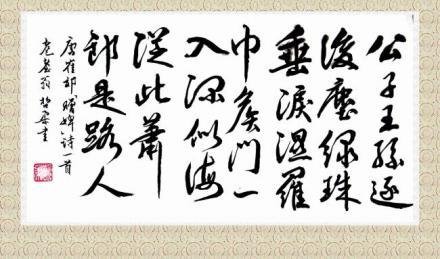 公子王孫逐
後塵緑珠
垂淚濕羅
巾侯門一
入深似海
從此蕭
郎是路人
唐崔郊贈婢詩一首